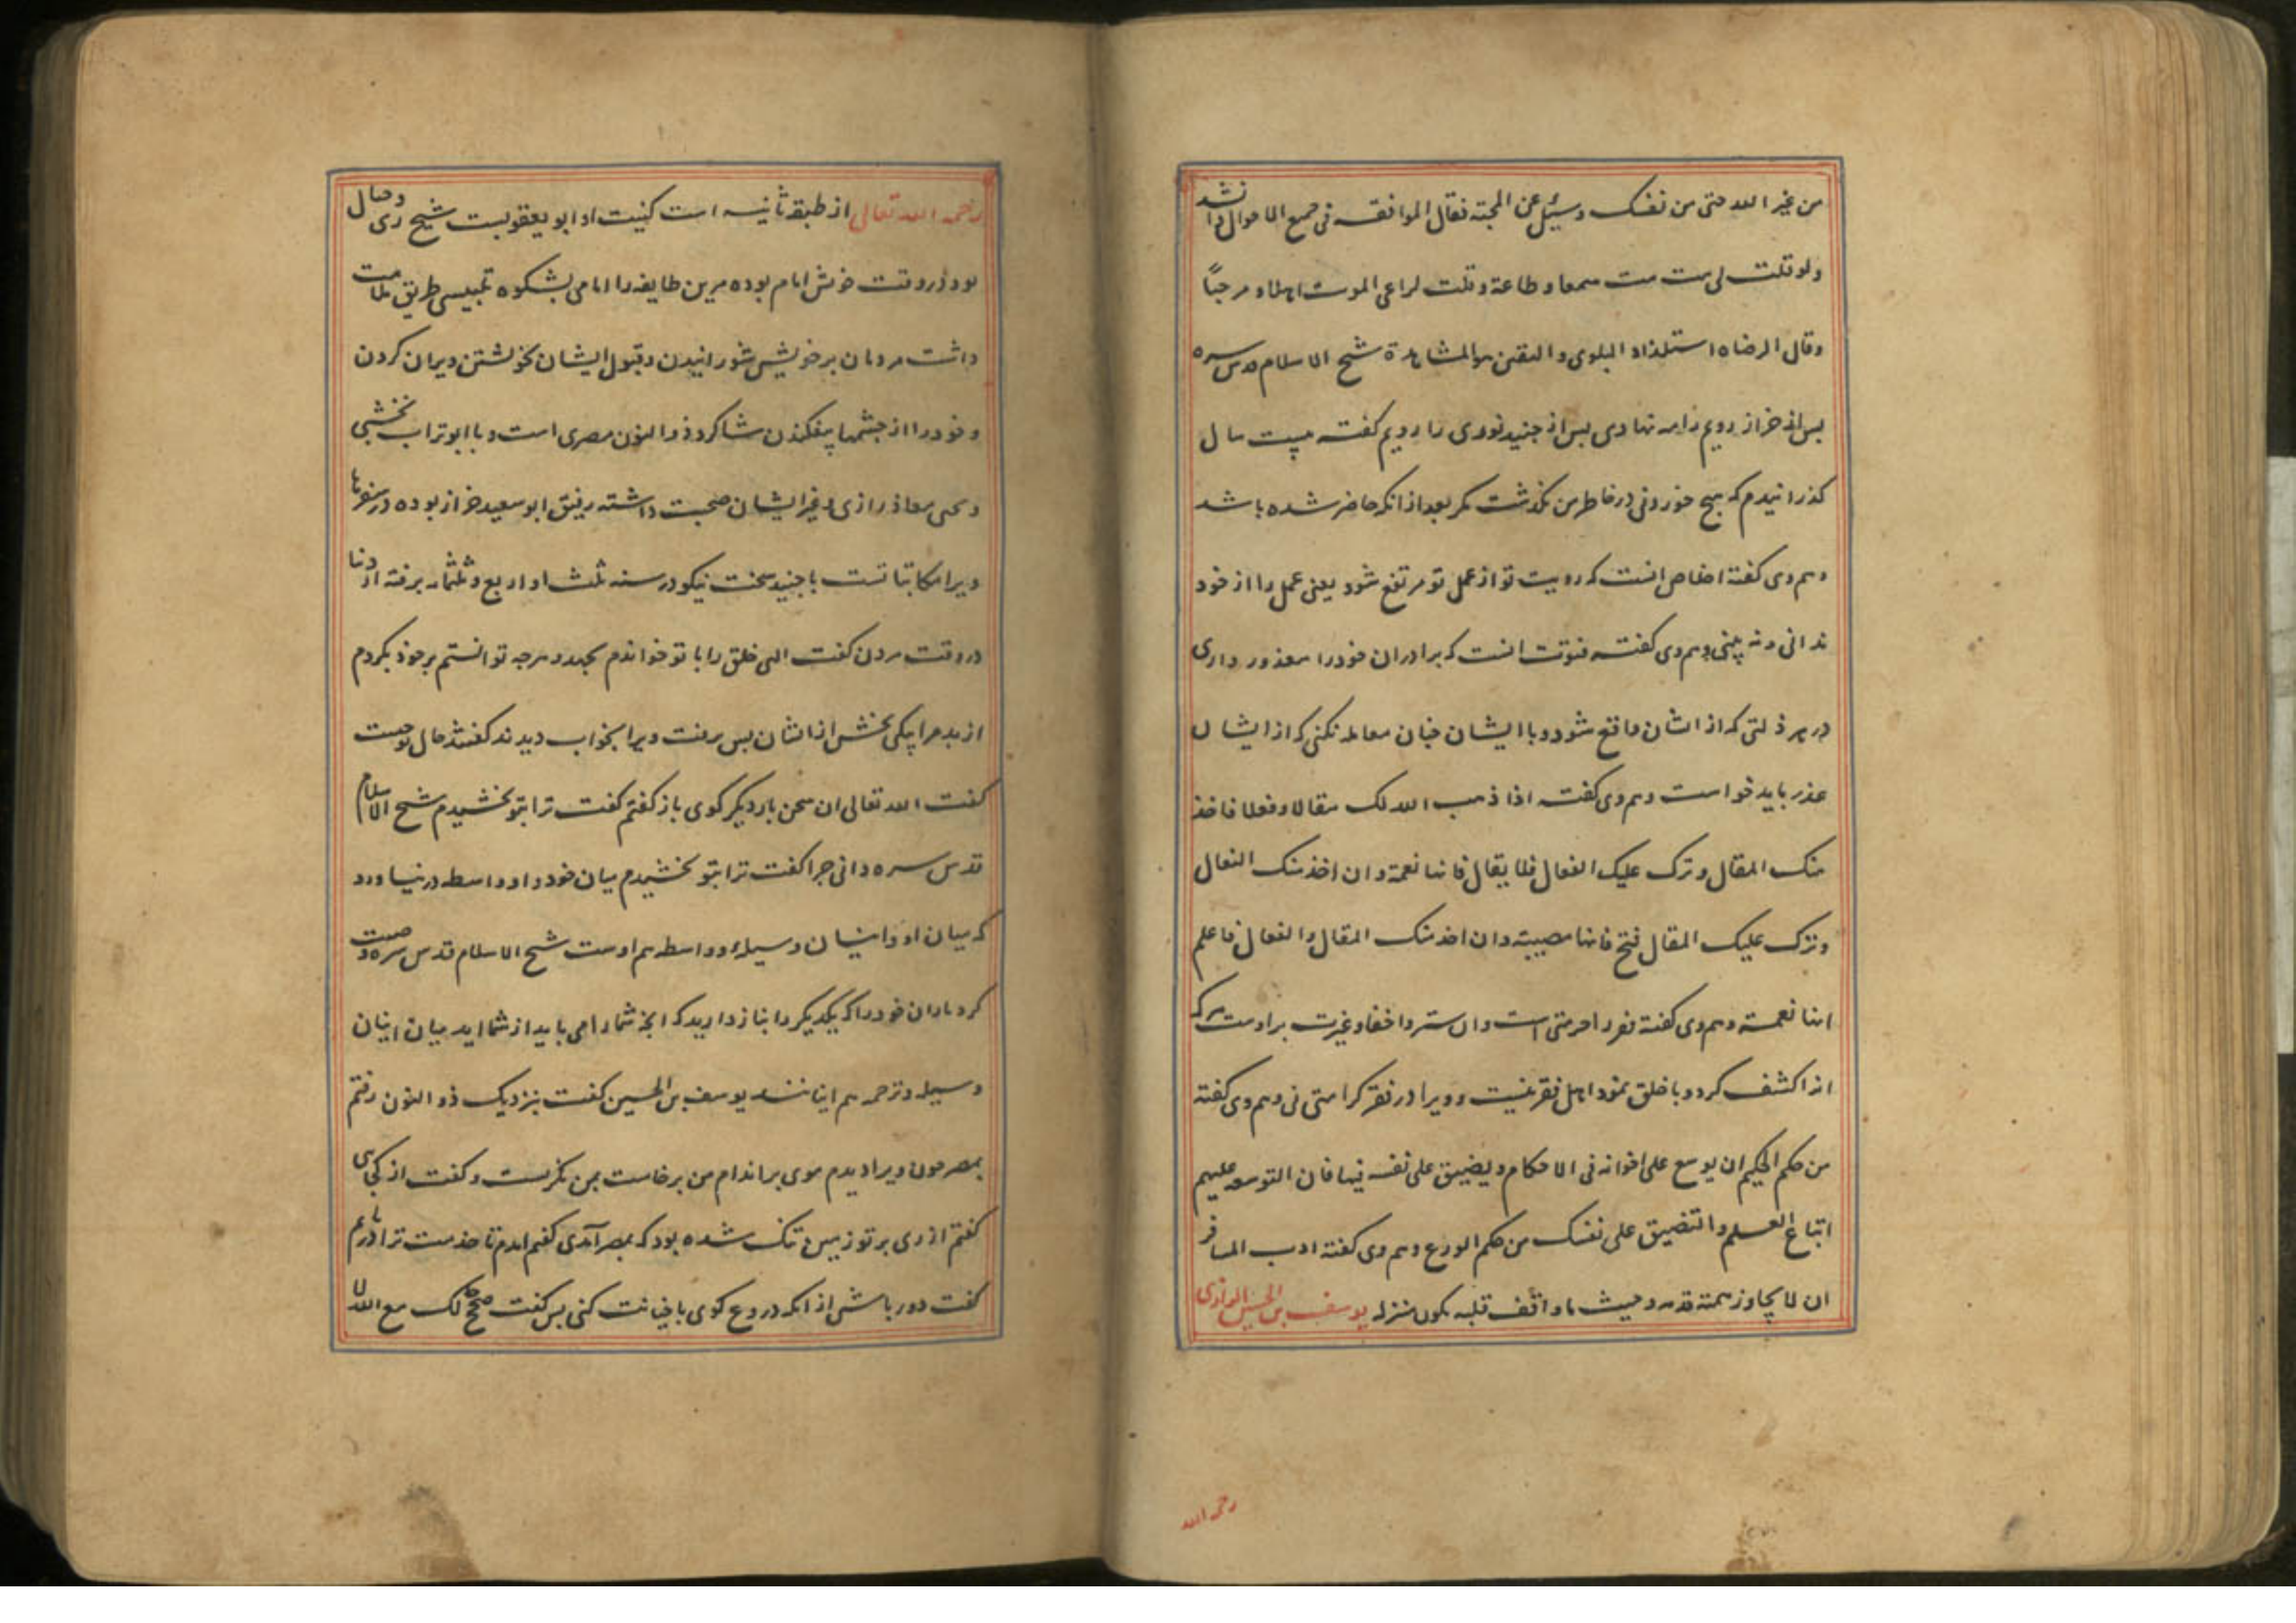 من غیر الله حتی من نفسک و سئل عن المحبة فقال الموافقه فی جمیع الاحوال وانشد
ولو قلت لی مت مت سمعا و طاعة و قلت لداعی الموت اهلا و مرحباً
وقال الرضاه استلذاذ البلوی و الیقین هو المشاهدة شیخ الاسلام قدس سره
بس از خراز رویم را مه نهادی بس از جنید نوری را رویم کفته بیست سال
کذرانیدم که هیچ خوردنی در خاطر من نکذشت مکر بعد از انکه حاضر شده باشد
وهم وی کفته اخلاص انست که رویت تو از عمل تو مرتفع شود یعنی عمل را از خود
ندانی و نه بینی وهم وی کفته فتوت انست که برادران خود را معذور داری
در هر ذلتی که از اشان واقع شود و با ایشان چنان معامله نکنی که از ایشان
عذر باید خواست وهم وی کفته اذا ذهب الله لک مقالا و فعلا فاخذ
منک المقال و ترک علیک الفعال فلا یقال فانها نعمة و ان اخذ منک الفعال
وترک علیک المقال فنح فانها مصیبة و ان اخذ منک المقال و الفعال فاعلم
انها نعمته وهم وی کفته فقر را حرمتی است و ان ستر و اخفا و غیرت براوست هر که
انرا کشف کرد و با خلق نمود اهل فقر نیست و ویرا در فقر کرامتی نی وهم وی کفته
من حکم الحکیم ان یوسع علی اخوانه فی الاحکام و یضیق علی نفسه فیها فان التوسعه علیهم
اتباع العلم و التضیق علی نفسک من حکم الورع وهم وی کفته ادب المسافر
ان لا یجاوز همته قدمه و حیث ما و اقف قلبه یکون منزله یوسف بن الحسین الرازی
رحمه الله
رحمه الله تعالی از طبقه ثانیه است کنیت او ابو یعقوبست شیخ ری و جبال
بود و در وقت خویش امام بوده مر این طایفه را امامی بشکوه تلبیس طریق ملامت
داشت مردمان بر خویش شورانیدن و قبول ایشان بخویشتن ویران کردن
و خود را از چشمها بیفکندن شاکرد ذو النون مصری است و با ابو تراب نخشبی
و یحیی معاذ رازی و غیر ایشان صحبت داشته رفیق ابو سعید خراز بوده در سفرها
ویرا مکاتباتست با جنید سخت نیکو در سنه ثلث او اربع و ثلثمایه برفته از دنیا
در وقت مردن کفت الهی خلق را با تو خواندم بجهد و هر چه توانستم بر خود بکردم
از بد مرا بیکی بخش از ایشان بس برفت ویرا بخواب دیدند کفتند حال تو چیست
کفت الله تعالی ان سخن بار دیکر کوی باز کفتم کفت ترا بتو بخشیدم شیخ الاسلام
قدس سره دانی چرا کفت ترا بتو بخشیدم میان خود و او واسطه در نیاورد
که میان او و اینان وسیله و واسطه هم اوست شیخ الاسلام قدس سره وصیت
کرد یاران خود را که یکدیکر را بناز دارید که انچه شما را می باید از شما اید میان اینان
وسیله و ترجمه هم اینانند یوسف بن الحسین کفت بنزدیک ذو النون رفتم
بمصر چون ویرا دیدم موی بر اندام من برخاست بمن نکریست و کفت از کجایی
کفتم از ری بر تو زمین تنک شده بود که بمصر آمدی کفتم امدم تا خدمت ترا دریابم
کفت دور باش از انکه دروغ کوی یا خیانت کنی بس کفت صحح حالک مع الله لا